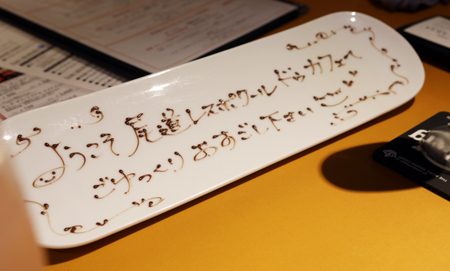 ようこそ 尾道 レスポワール ドゥ カフェへ
ごゆっくり おすごし下さい